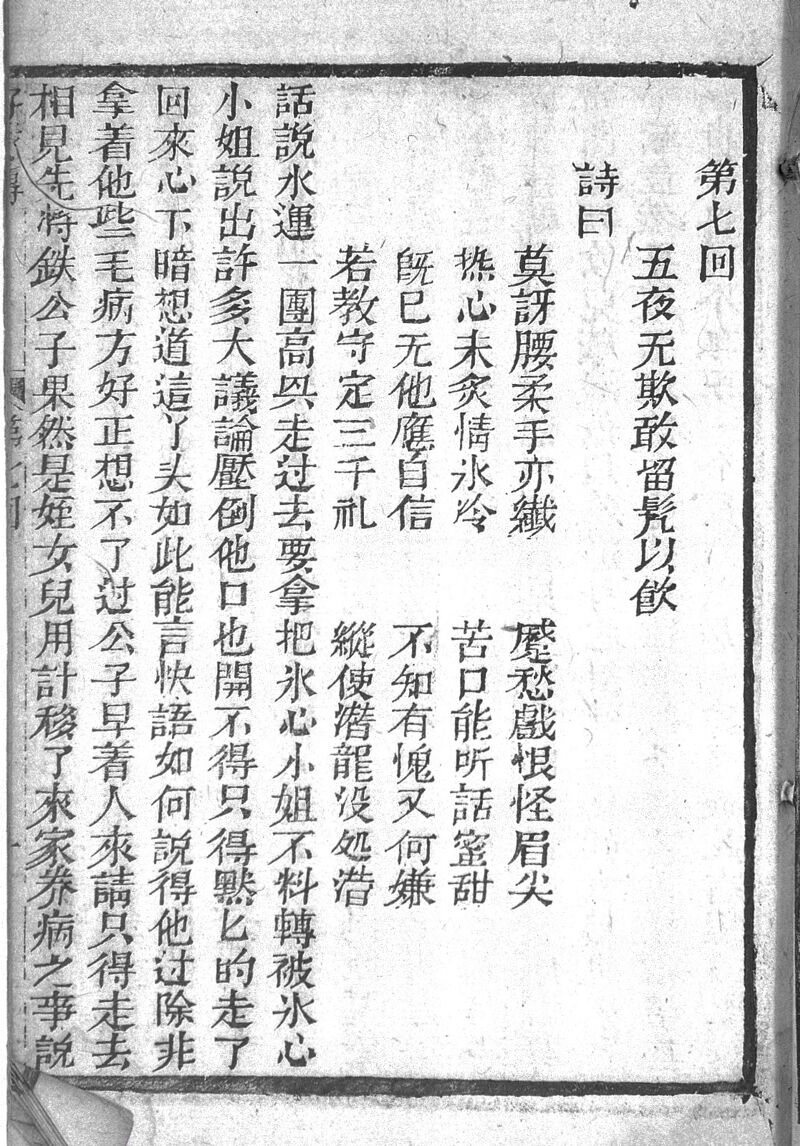 第七回
五夜无欺敢留髠以飲
詩曰
莫訝腰柔手亦纖 蹙愁戲恨怪眉尖
热心未炙情氷冷 苦口能听話蜜甜
既已无他應自信 不知有愧又何嫌
若教守定三千礼 縱使潜龍没処潜
話說水運一團高兴走过去要拿把氷心小姐不料轉被氷心
小姐說出許多大議論壓倒他口也開不得只得默匕的走了
回來心下暗想道這丫头如此能言快語如何說得他过除非
拿着他些毛病方好正想不了过公子早着人來請只得走去
相見先将鉄公子果然是姪女兒用計移了來家养病之事說
好逑傳 第七回